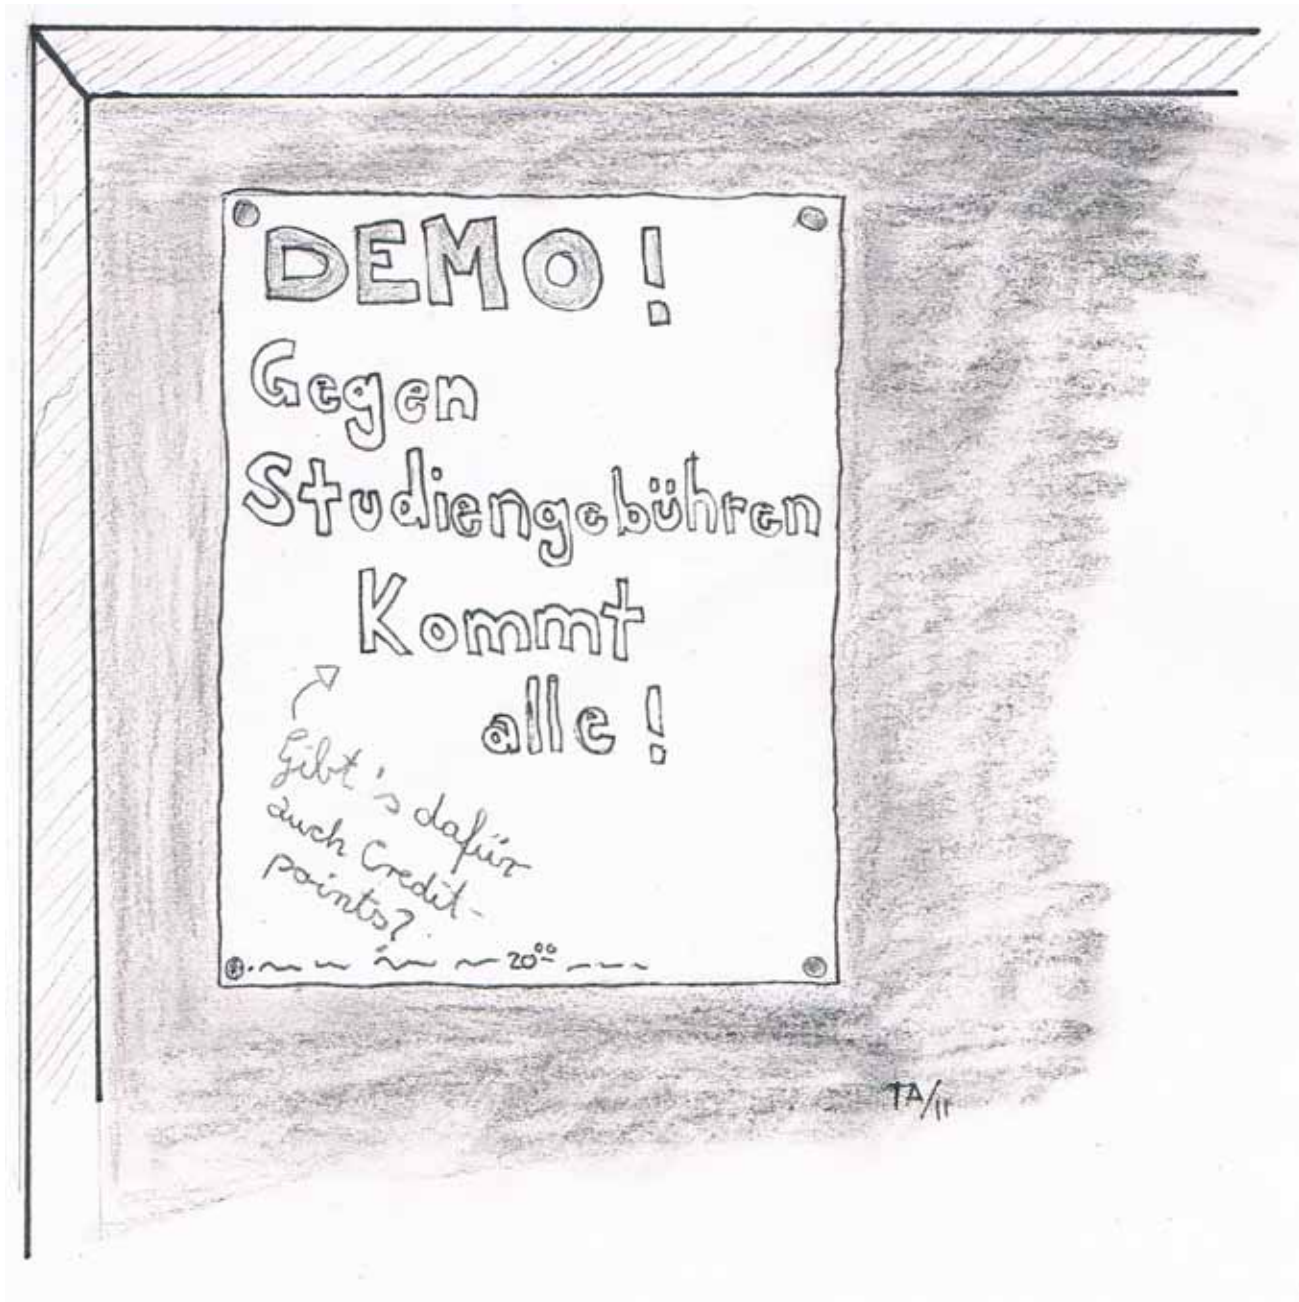 DEMO!
Gegen
Studiengebühren
Kommt
alle!
Gibt's dafür
auch Credit-
points?
20⁰⁰
TA/11